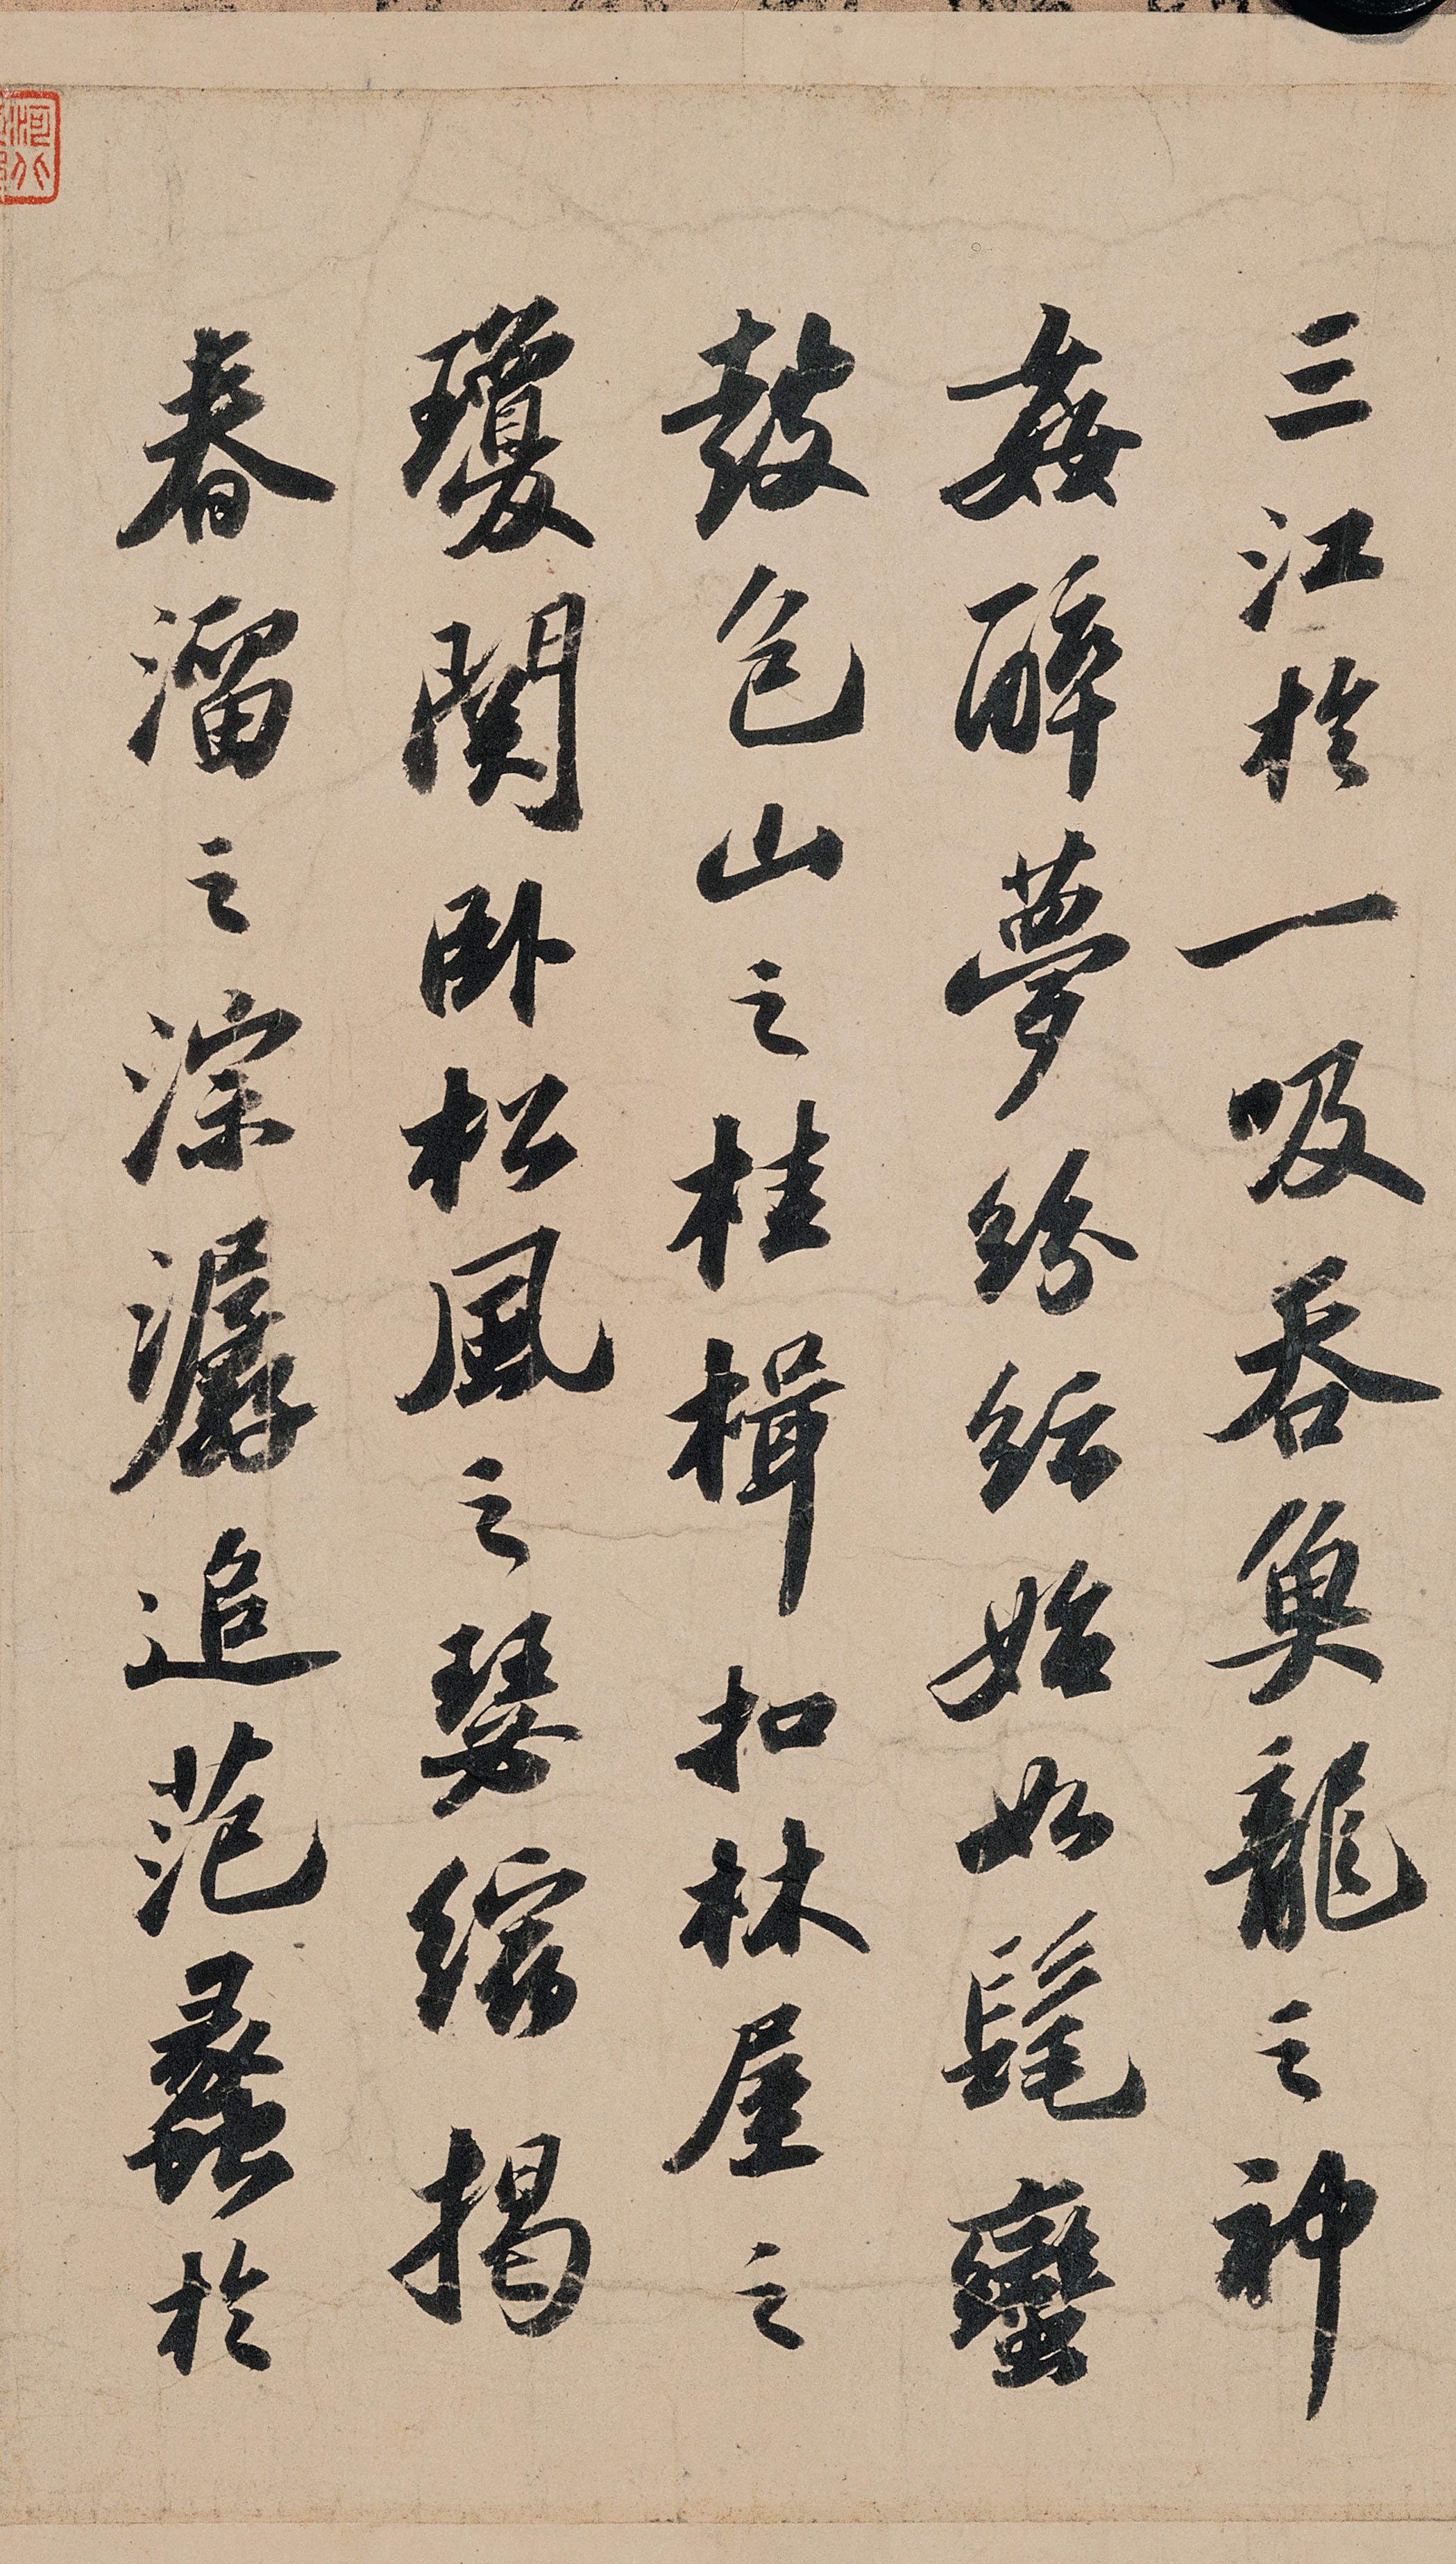 三江於一吸吞魚龍之神
姦醉夢紛紜始如髦蠻
鼓包山之桂楫扣林屋之
瓊關卧松風之瑟縮揭
春溜之淙潺追范蠡於